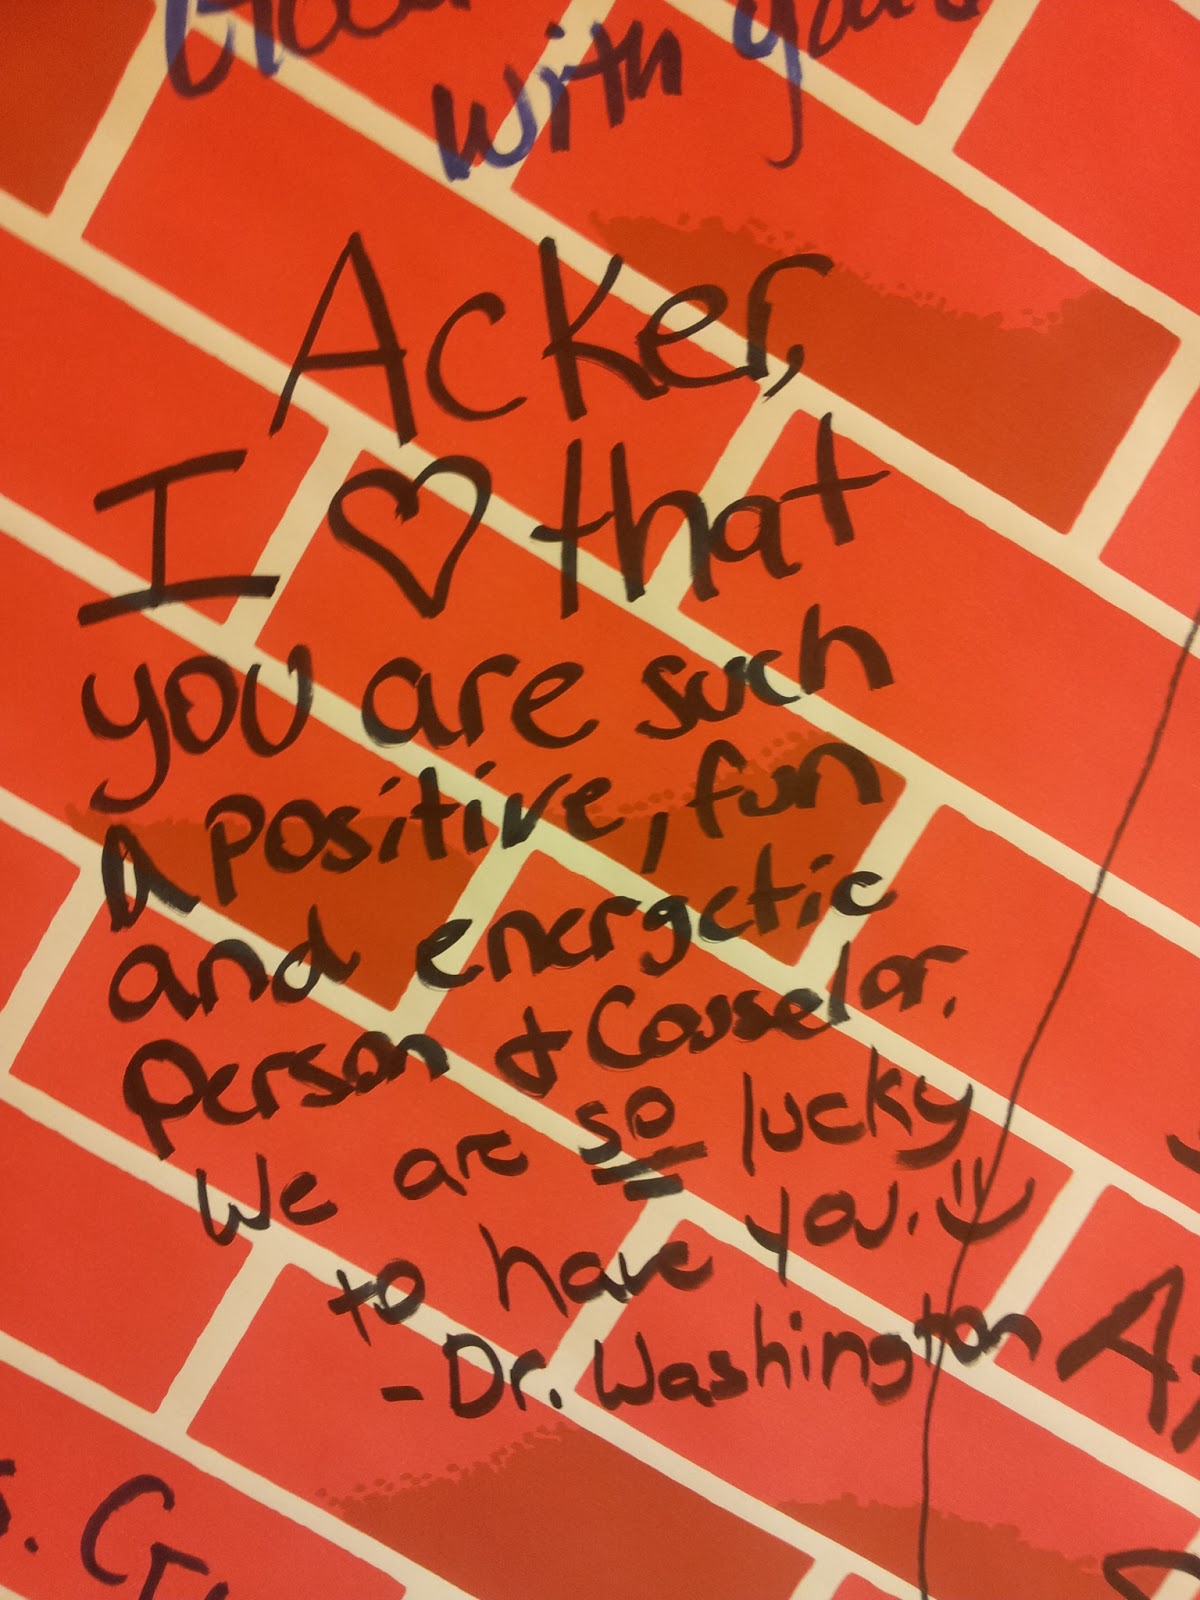 with
Acker,
I ♡ that
you are such
a positive, fun
and energetic
person & Couselor.
We are so lucky
to have you. :)
- Dr. Washington